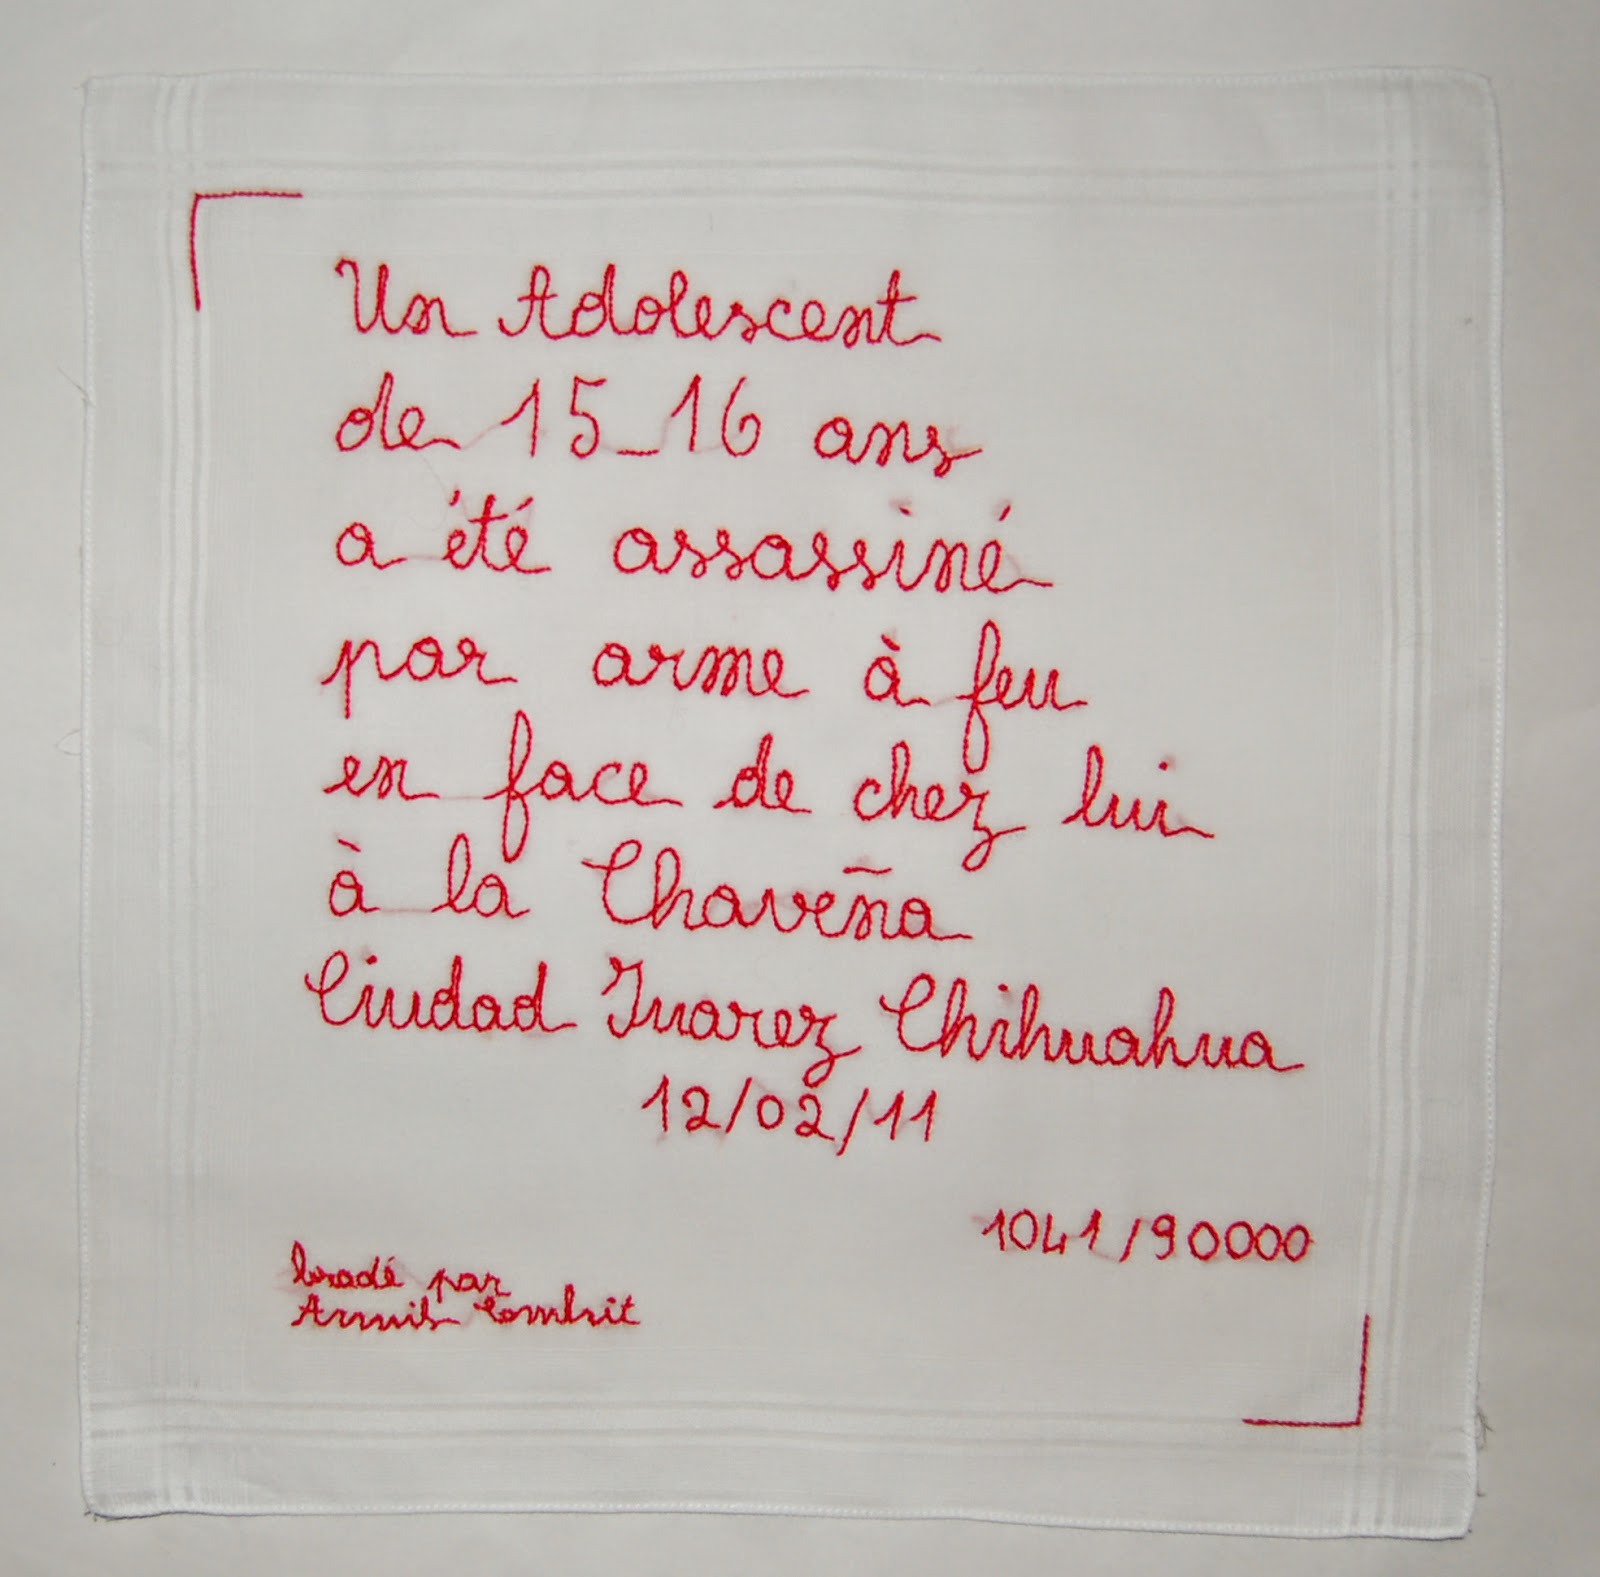 Un Adolescent
de 15_16 ans
a été assassiné
par arme à feu
en face de chez lui
à la Chaveña
Ciudad Juarez Chihuahua
12/02/11
1041/90000
brodé par